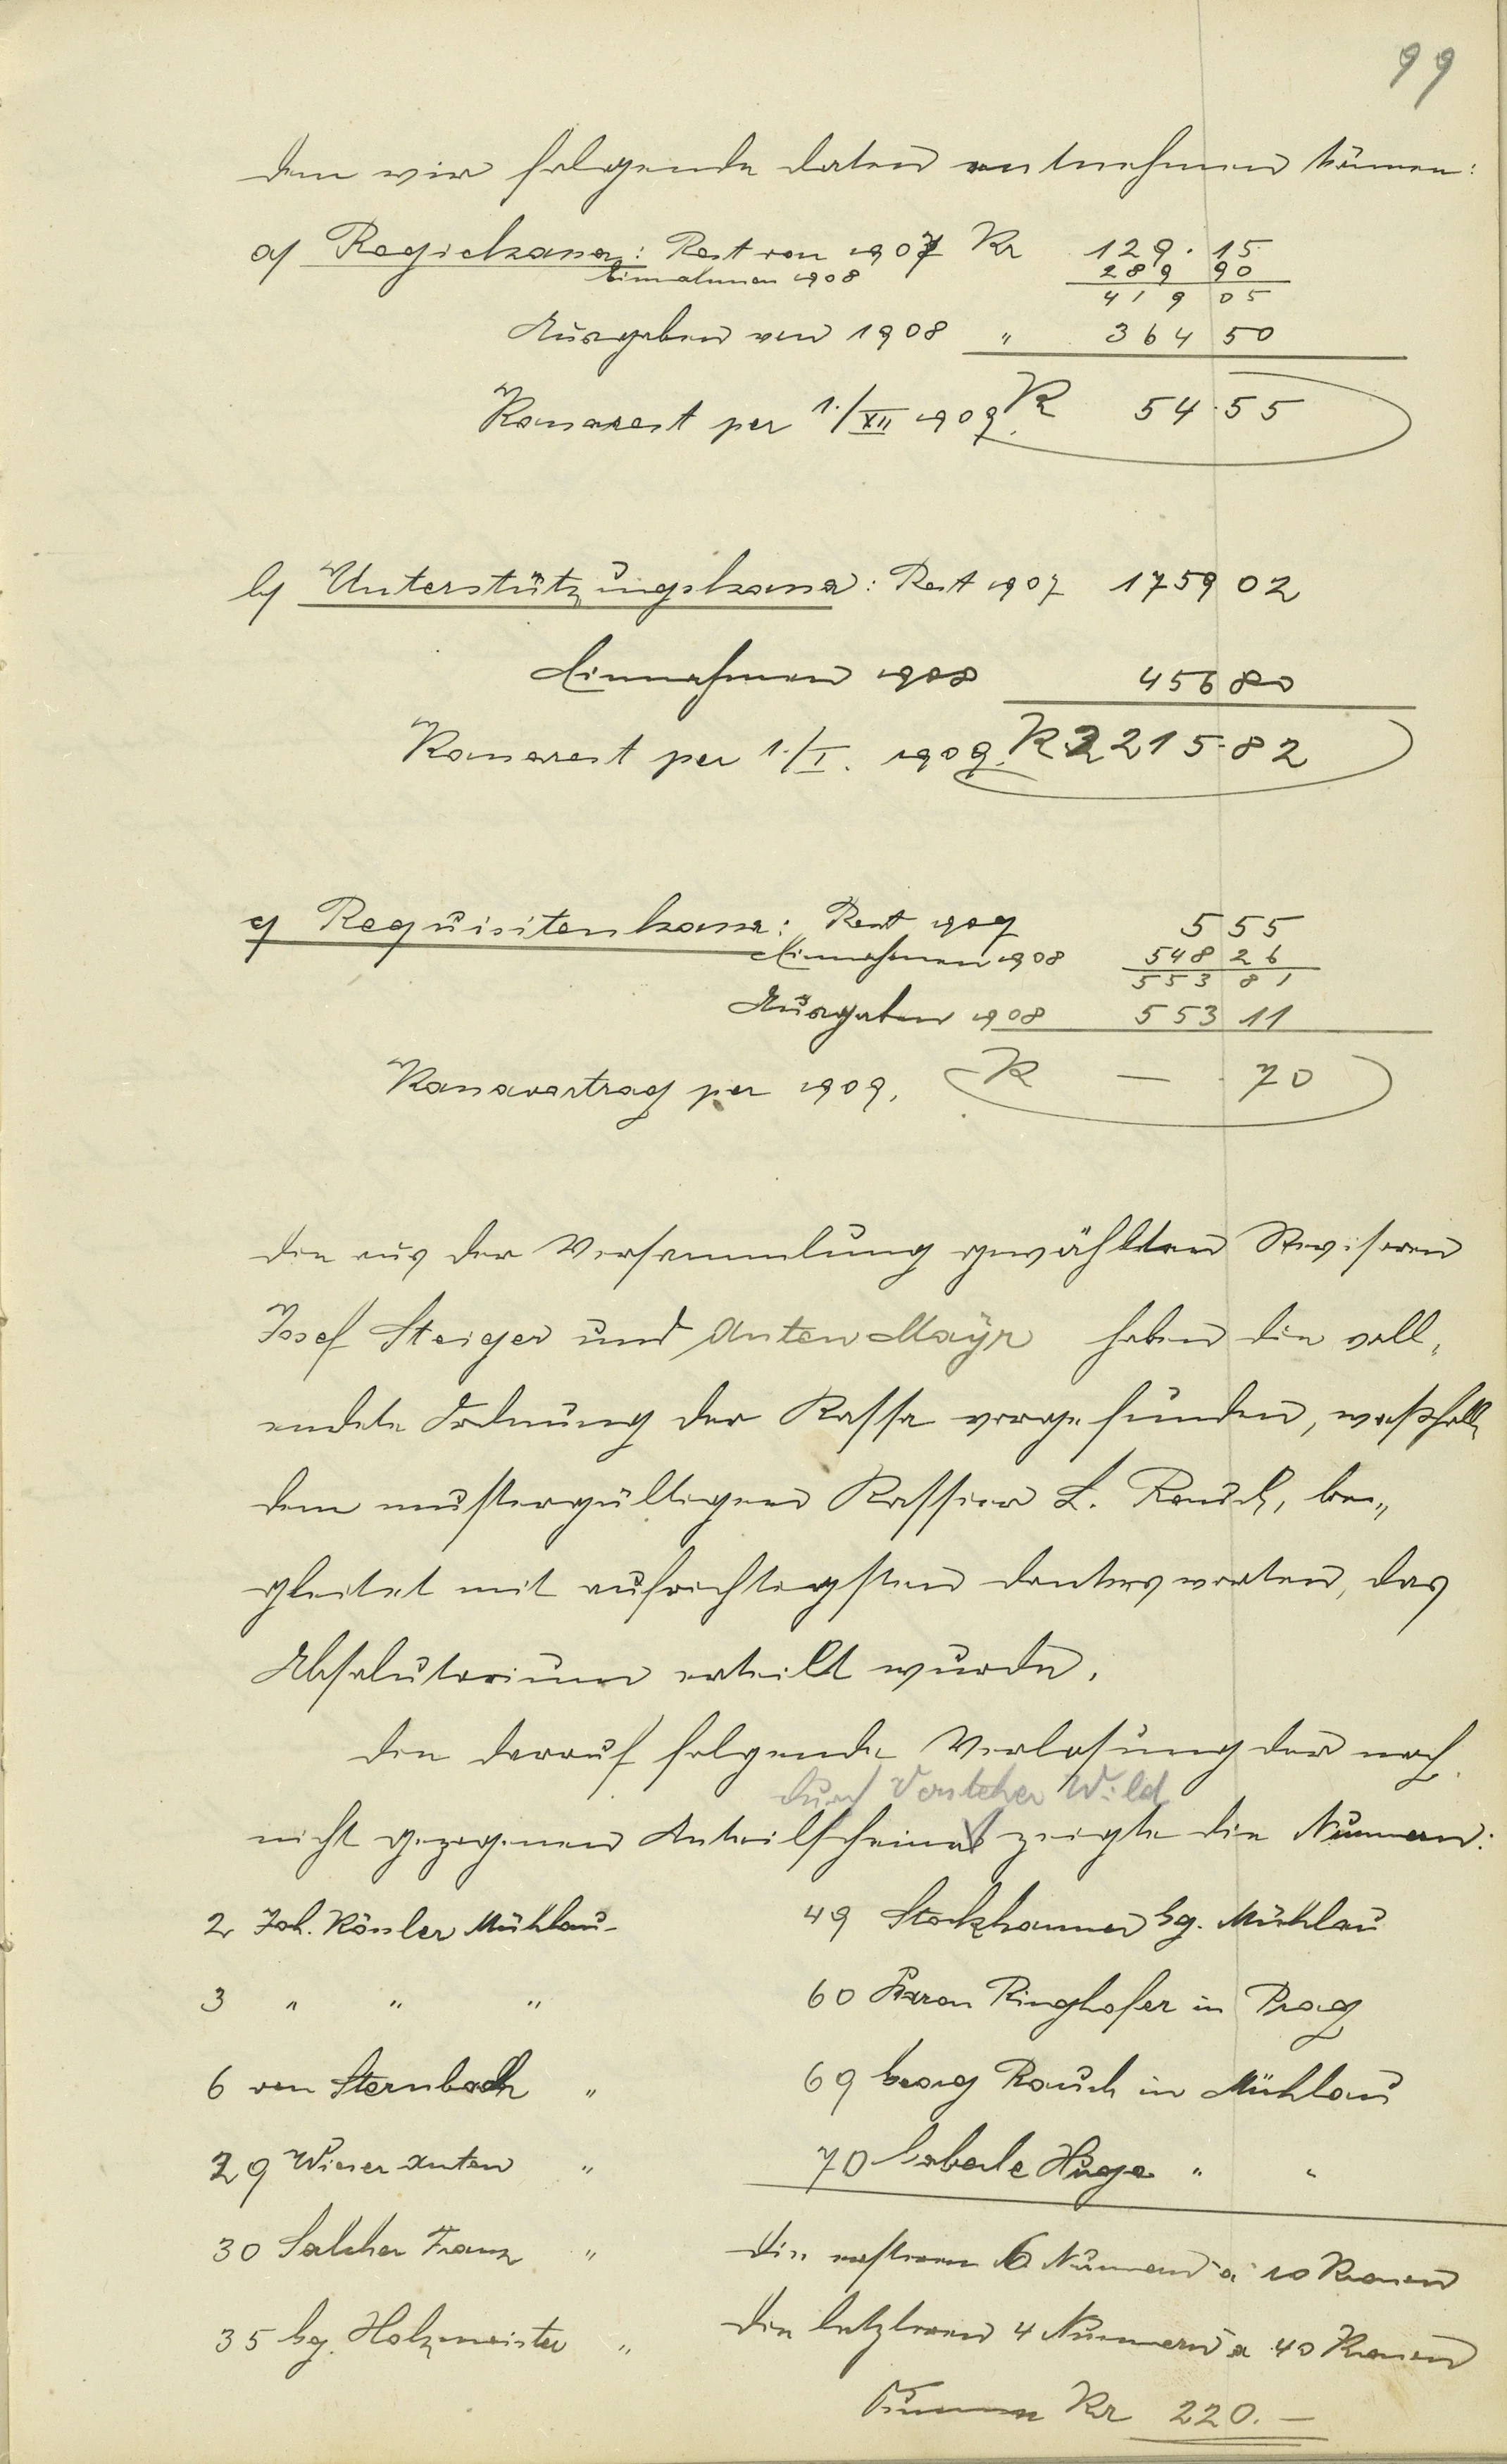 99
dem wir folgende Daten entnehmen können:
a) Regiekassa: Rest von 1907 Kr 129.15
Einnahmen 1908 289 90
419 05
Ausgaben von 1908 " 364 50
Kassarest per 1./XII 1909. K 54.55
b) Unterstützungskassa: Rest 1907 1759 02
Einnahmen 1908 456 80
Kassarest per 1./I. 1909. K 2215.82
c) Requisitenkassa: Rest 1907 5 55
Einnahmen 1908 548 26
553 81
Ausgaben 1908 553 11
Kassavortrag per 1909. K — . 70
Die aus der Versammlung gewählten Revisoren
Josef Steiger und Anton Mayr haben die voll-
endete Ordnung der Kassa vorgefunden, weßhalb
dem mustergültigen Kassier L. Rauch, be-
gleitet mit aufrichtigsten Dankesworten, das
Absolutorium erteilt wurde.
Die darauf folgende Verlosung der noch
durch Vorsteher Wild
nicht gezogenen Anteilscheine zeigte die Nummern:
2 Joh. Rössler Mühlau
3 " " "
6 von Sternbach "
29 Wieser Anton "
30 Salcher Franz "
35 Gg. Holzmeister "
49 Stockhammer Gg. Mühlau
60 Baron Ringhofer in Prag
69 Georg Rauch in Mühlau
70 Hugo " "
Die ersteren 6 Nummern a 10 Kronen
Die letzteren 4 Nummern a 40 Kronen
Summa Kr 220.—